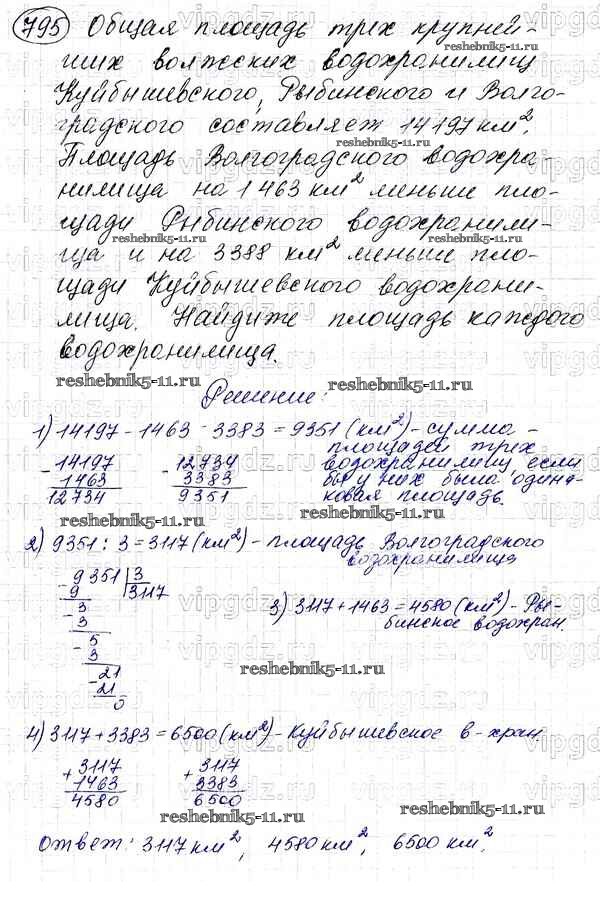 795 Общая площадь трех крупней-
ших волжских водохранилищ
Куйбышевского, Рыбинского и Волго-
градского составляет 14197 км².
Площадь Волгоградского водохра-
нилища на 1463 км² меньше пло-
щади Рыбинского водохранили-
ща и на 3388 км² меньше пло-
щади Куйбышевского водохрани-
лища. Найдите площадь каждого
водохранилища.
Решение:
1) 14197 - 1463 - 3383 = 9351 (км²) - сумма
площадей трех
водохранилищ, если
бы у них была одина-
ковая площадь.
- 14197
1463
12734
- 12734
3383
9351
2) 9351 : 3 = 3117 (км²) - площадь Волгоградского
водохранилища
- 9351 | 3
9 3117
3
- 3
5
- 3
21
- 21
0
3) 3117 + 1463 = 4580 (км²) - Ры-
бинское водохран.
4) 3117 + 3383 = 6500 (км²) - Куйбышевское в-хран
+ 3117
1463
4580
+ 3117
3383
6500
Ответ: 3117 км², 4580 км², 6500 км².
reshebnik5-11.ru
reshebnik5-11.ru
reshebnik5-11.ru
reshebnik5-11.ru
reshebnik5-11.ru
reshebnik5-11.ru
reshebnik5-11.ru
reshebnik5-11.ru
reshebnik5-11.ru
reshebnik5-11.ru
vipgdz.ru